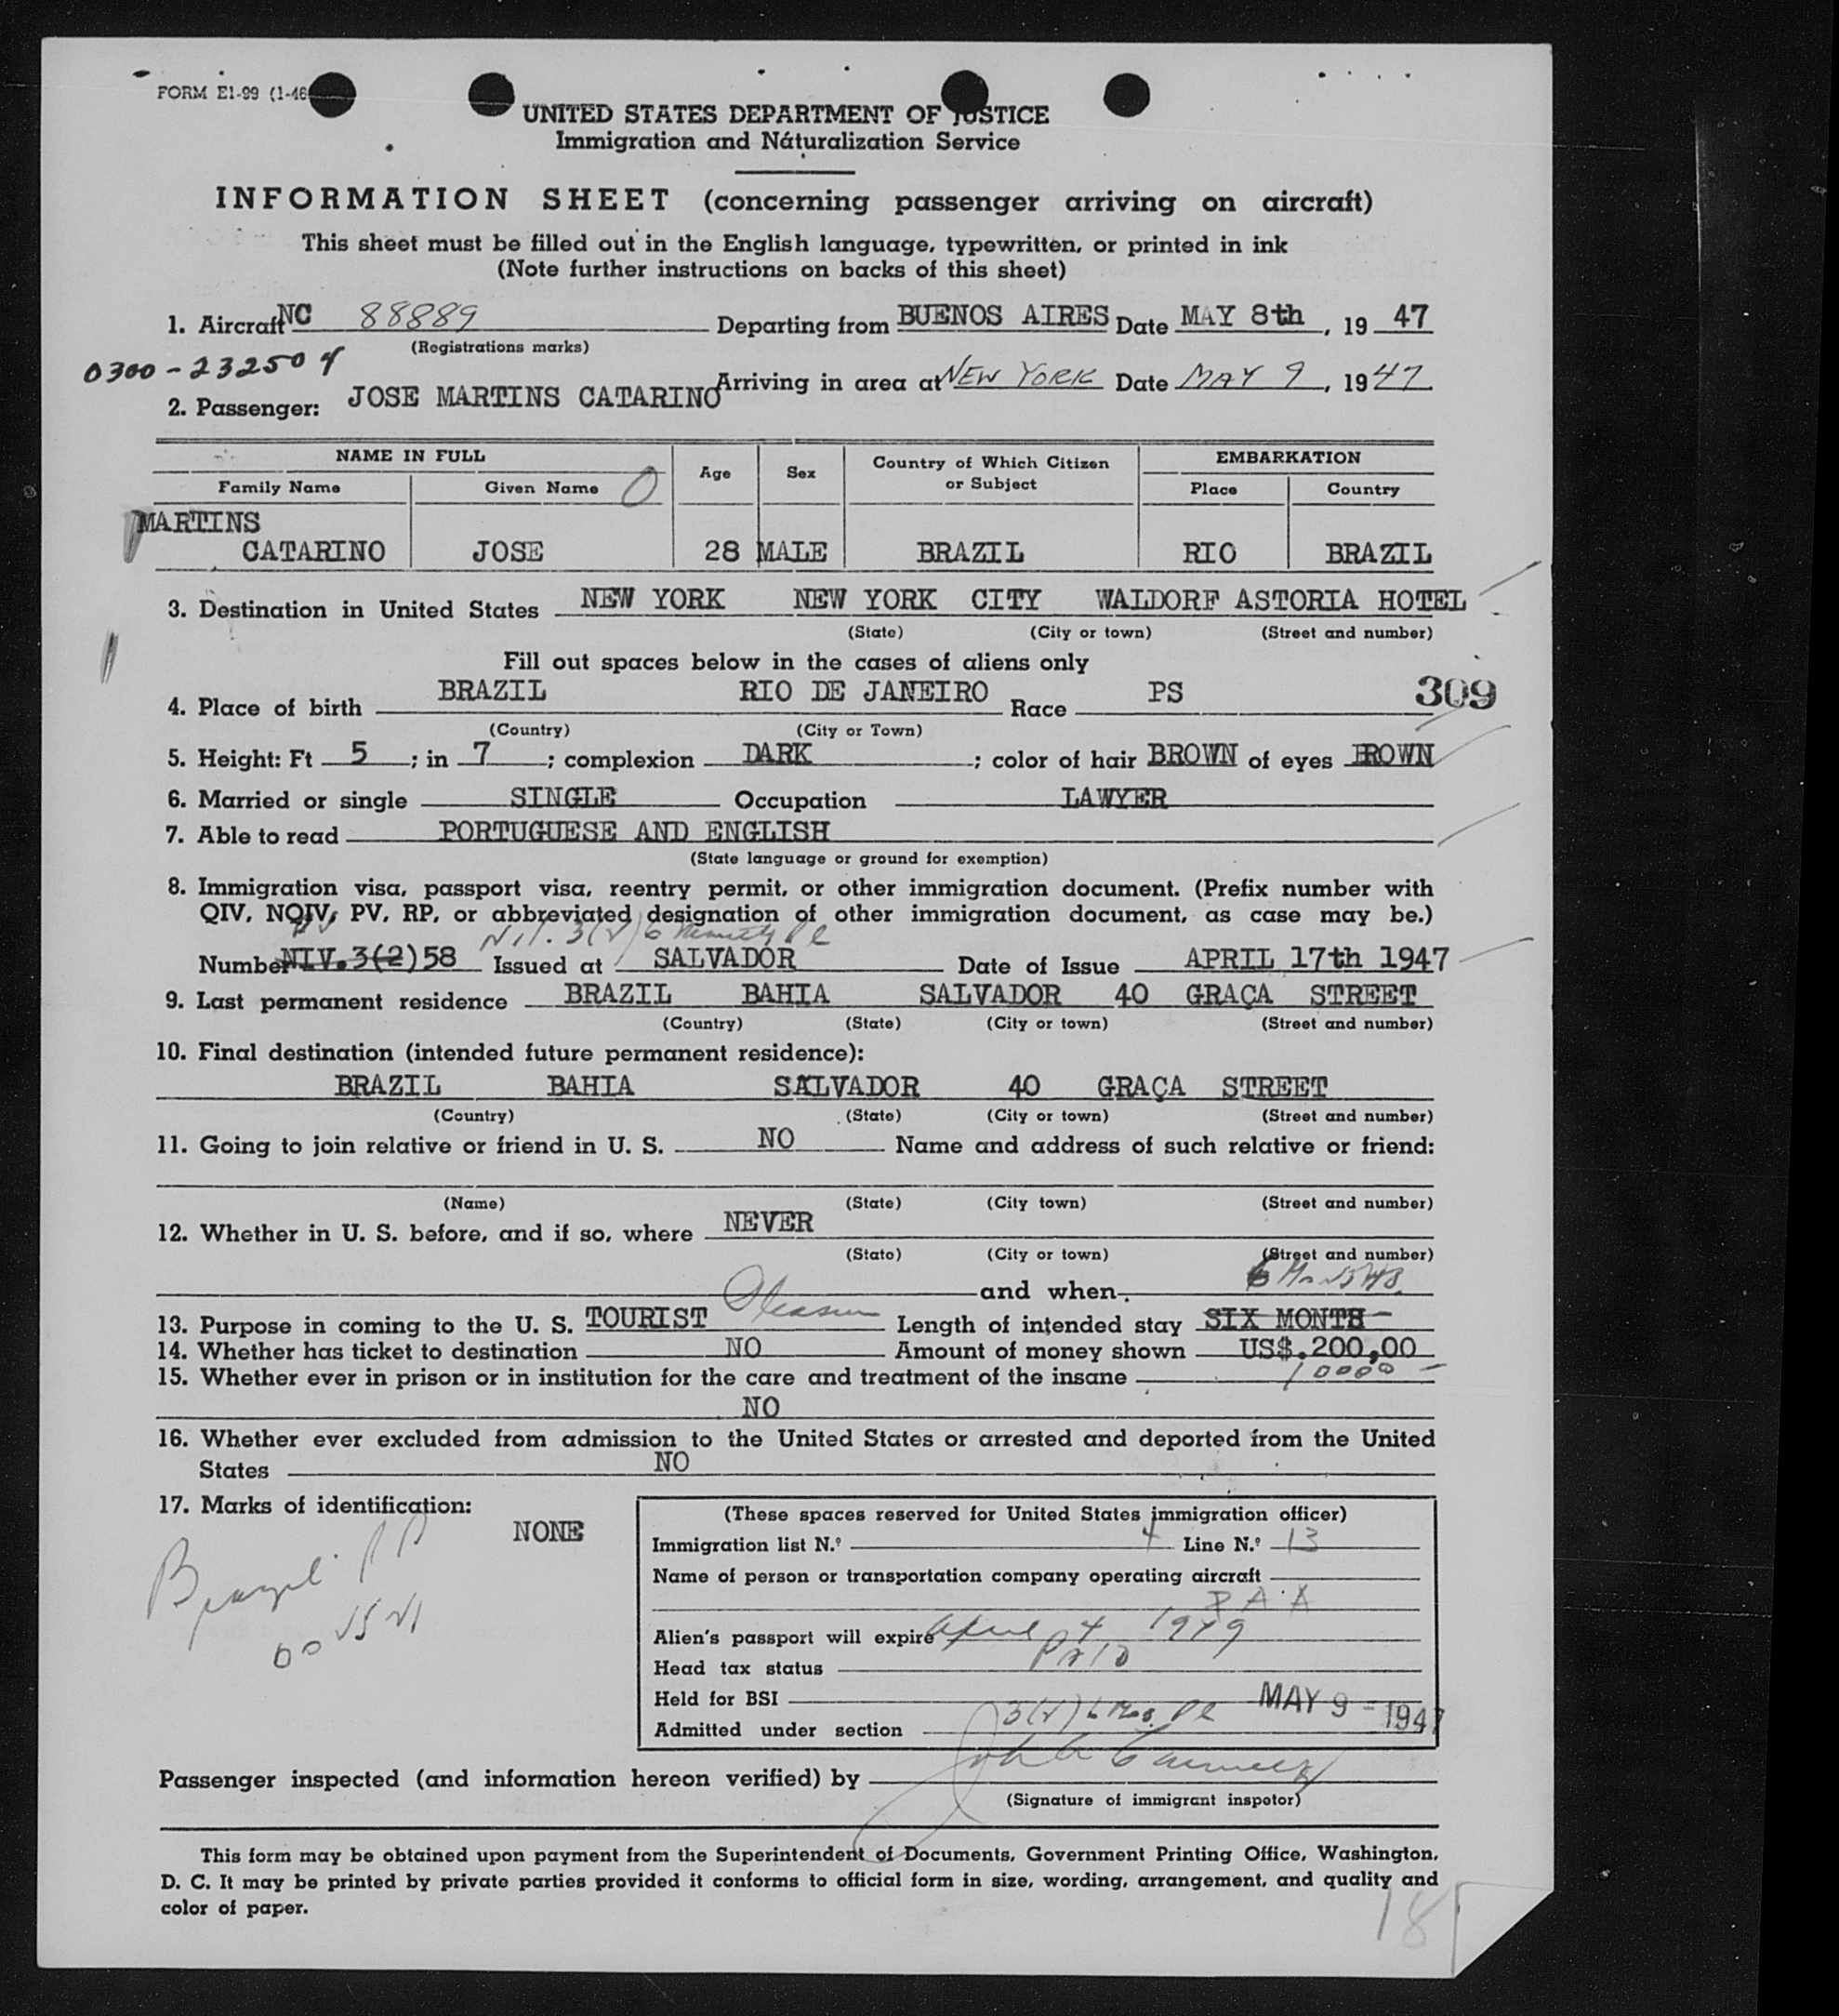 FORM E1-99 (1-46
UNITED STATES DEPARTMENT OF JUSTICE
Immigration and Naturalization Service
INFORMATION SHEET (concerning passenger arriving on aircraft)
This sheet must be filled out in the English language, typewritten, or printed in ink
(Note further instructions on backs of this sheet)
1. Aircraft NC 88889 Departing from BUENOS AIRES Date MAY 8th, 19 47
(Registrations marks)
0300-232504
Arriving in area at NEW YORK Date MAY 9, 1947
2. Passenger: JOSE MARTINS CATARINO
NAME IN FULL Age Sex Country of Which Citizen or Subject EMBARKATION
Family Name Given Name Place Country
MARTINS
CATARINO JOSE 28 MALE BRAZIL RIO BRAZIL
3. Destination in United States NEW YORK NEW YORK CITY WALDORF ASTORIA HOTEL
(State) (City or town) (Street and number)
Fill out spaces below in the cases of aliens only
309
4. Place of birth BRAZIL RIO DE JANEIRO Race PS
(Country) (City or Town)
5. Height: Ft 5 ; in 7 ; complexion DARK ; color of hair BROWN of eyes BROWN
6. Married or single SINGLE Occupation LAWYER
7. Able to read PORTUGUESE AND ENGLISH
(State language or ground for exemption)
8. Immigration visa, passport visa, reentry permit, or other immigration document. (Prefix number with
QIV, NQIV, PV, RP, or abbreviated designation of other immigration document, as case may be.)
Number NIV.3(2)58 Issued at SALVADOR Date of Issue APRIL 17th 1947
9. Last permanent residence BRAZIL BAHIA SALVADOR 40 GRAÇA STREET
(Country) (State) (City or town) (Street and number)
10. Final destination (intended future permanent residence):
BRAZIL BAHIA SALVADOR 40 GRAÇA STREET
(Country) (State) (City or town) (Street and number)
11. Going to join relative or friend in U. S. NO Name and address of such relative or friend:
(Name) (State) (City town) (Street and number)
12. Whether in U. S. before, and if so, where NEVER
(State) (City or town) (Street and number)
and when
13. Purpose in coming to the U. S. TOURIST Pleasure Length of intended stay SIX MONTH
14. Whether has ticket to destination NO Amount of money shown US$.200,00
15. Whether ever in prison or in institution for the care and treatment of the insane
10000
NO
16. Whether ever excluded from admission to the United States or arrested and deported from the United
States NO
17. Marks of identification: NONE
Brazil PP
(These spaces reserved for United States immigration officer)
Immigration list N.º 4 Line N.º 13
Name of person or transportation company operating aircraft
PAA
Alien's passport will expire April 4 1949
Head tax status PAID
Held for BSI
MAY 9 - 1947
Admitted under section 3(2) 6 Mos. Pl
Passenger inspected (and information hereon verified) by
(Signature of immigrant inspetor)
This form may be obtained upon payment from the Superintendent of Documents, Government Printing Office, Washington,
D. C. It may be printed by private parties provided it conforms to official form in size, wording, arrangement, and quality and
color of paper.
18